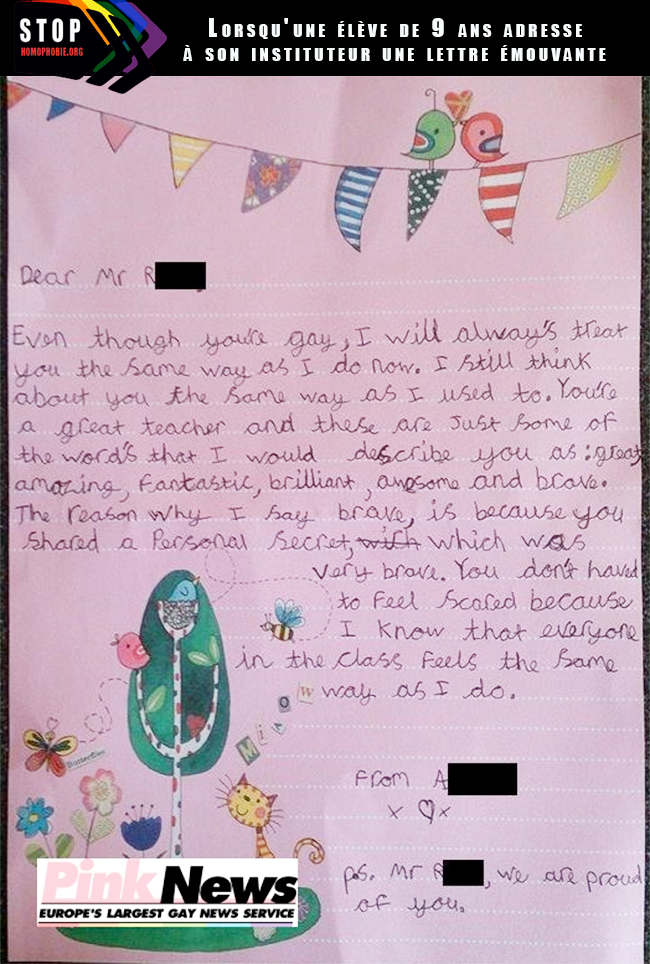 STOP
HOMOPHOBIE.ORG
Lorsqu'une élève de 9 ans adresse
à son instituteur une lettre émouvante
Dear Mr R
Even though you're gay, I will always's treat
you the same way as I do now. I still think
about you the same way as I used to. You're
a great teacher and these are just some of
the word's that I would describe you as: great
amazing, fantastic, brilliant, awesome and brave.
The reason why I say brave, is because you
shared a Personal secret, with which was
very brave. You don't haved
to feel scared because
I know that everyone
in the class feels the same
way as I do.
Miaow
Butterflies
From A
x ♡ x
p.s. Mr R, we are proud
of you.
PinkNews
EUROPE'S LARGEST GAY NEWS SERVICE